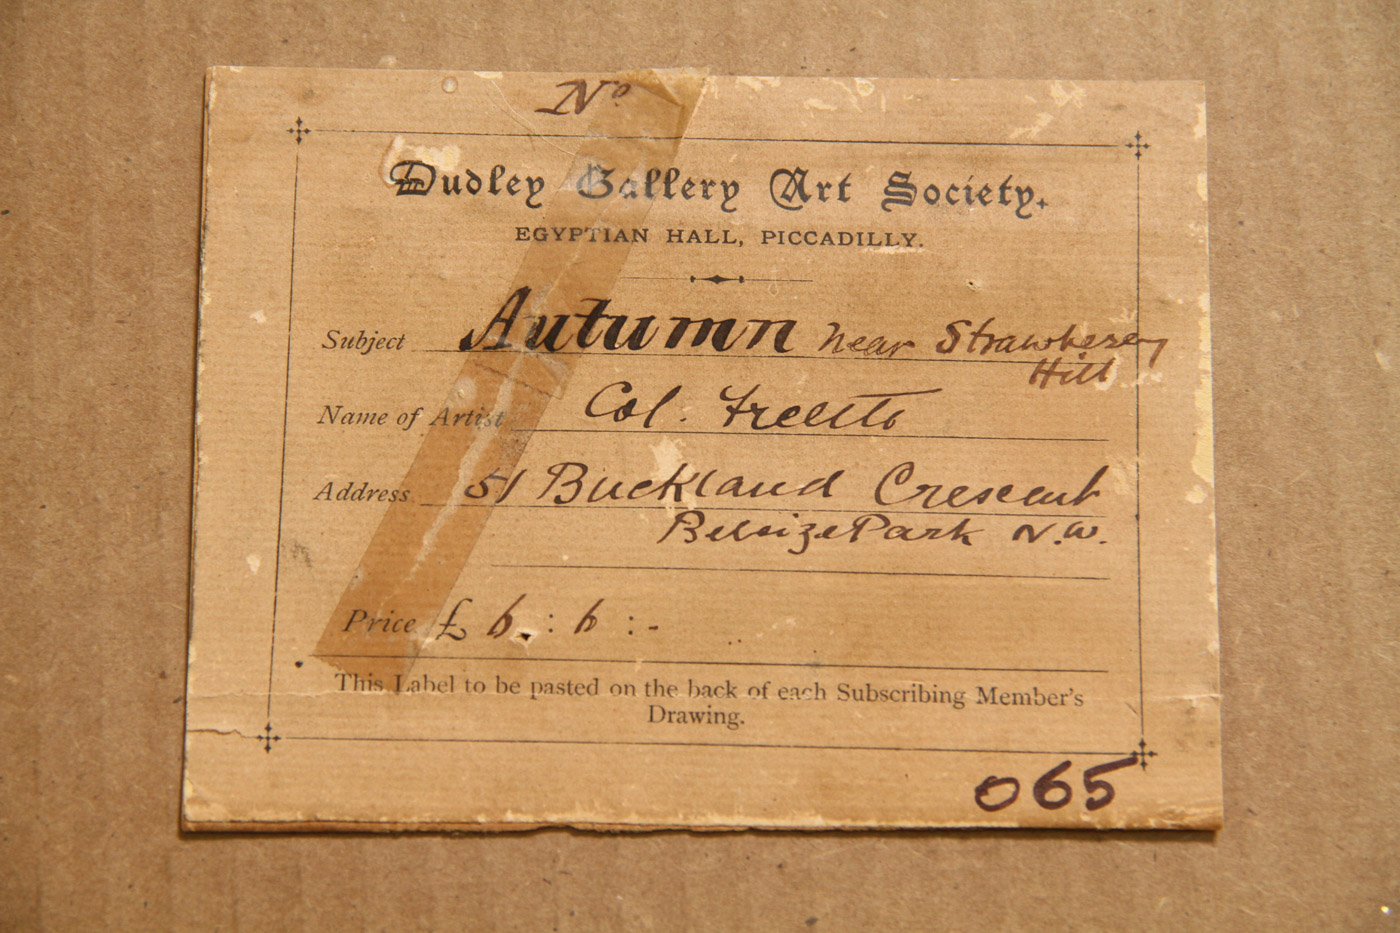 No
Dudley Gallery Art Society.
EGYPTIAN HALL, PICCADILLY.
Subject Autumn near Strawberry
Hill
Name of Artist Col.
Address 51 Buckland Crescent
Belsize Park N.W.
Price £ 6 : 6 : -
This Label to be pasted on the back of each Subscribing Member's
Drawing.
065